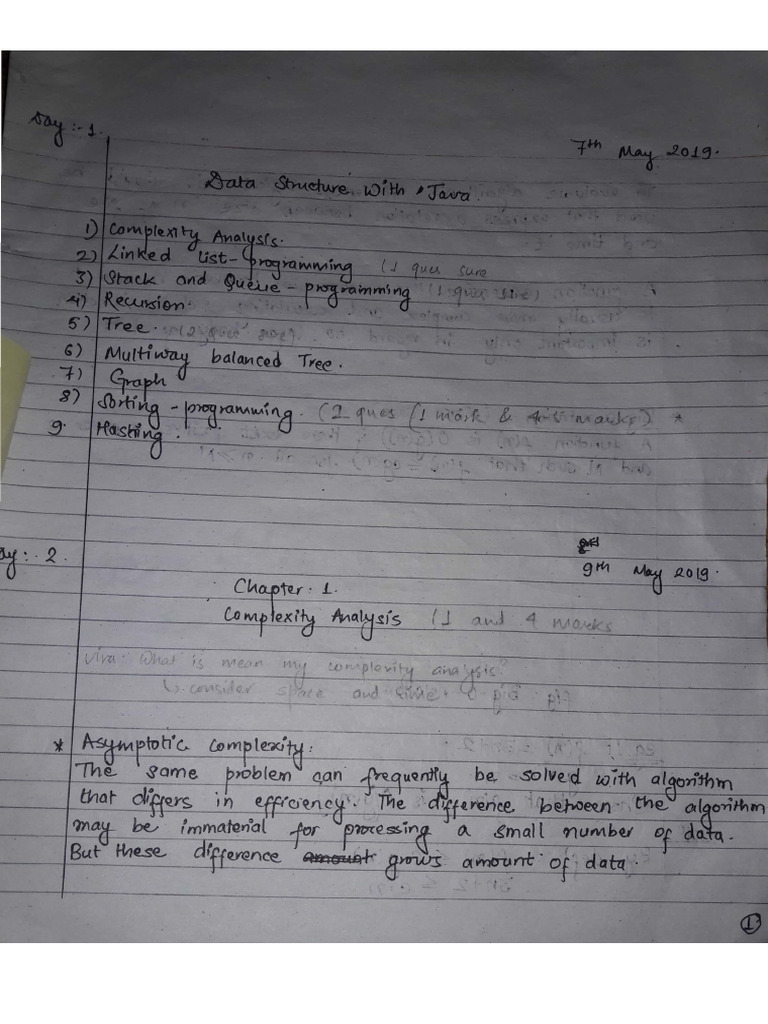 Day :- 1.
7th May 2019.
Data Structure With Java
1) Complexity Analysis.
2) Linked list - programming (1 ques sure
3) Stack and Queue - programming (1 ques sure)
4) Recursion.
5) Tree.
6) Multiway balanced Tree.
7) Graph
8) Sorting - programming. (1 ques (1 mark & 4 marks) *
9. Hashing.
ay :- 2.
9th May 2019.
Chapter : 1.
Complexity Analysis (1 and 4 marks
Viva: What is mean my complexity analysis?
↳ consider space and time
* Asymptotic complexity:
The same problem can frequently be solved with algorithm
that differs in efficiency. The difference between the algorithm
may be immaterial for processing a small number of data.
But these difference grows amount of data.
1